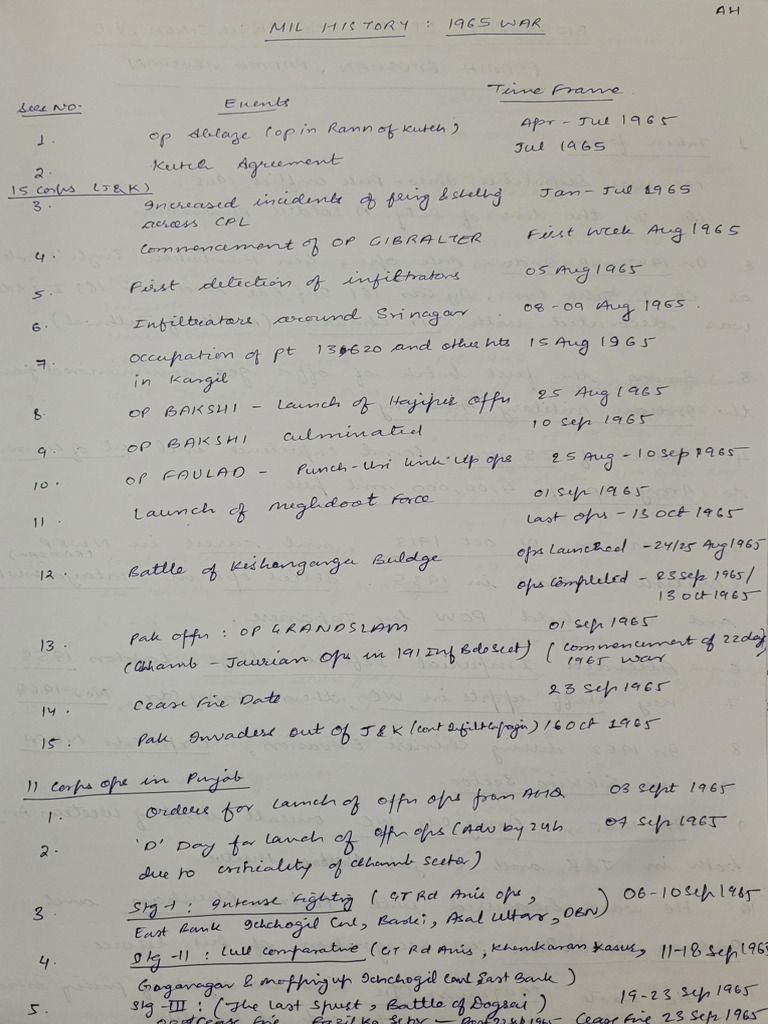 AH
MIL HISTORY : 1965 WAR
Ser No. Events Time Frame
1. Op Ablaze (op in Rann of Kutch) Apr - Jul 1965
2. Kutch Agreement Jul 1965
15 Corps (J&K)
3. Increased incidents of firing & shelling Jan - Jul 1965
across CPL
4. Commencement of OP GIBRALTER First Week Aug 1965
5. First detection of infiltrators 05 Aug 1965
6. Infiltrators around Srinagar 08-09 Aug 1965.
7. Occupation of pt 13620 and other hts 15 Aug 1965
in Kargil
8. OP BAKSHI - Launch of Hajipir offn 25 Aug 1965
9. OP BAKSHI culminated 10 Sep 1965
10. OP FAULAD - Punch-Uri link-up ops 25 Aug - 10 Sep 1965
11. Launch of Meghdoot Force 01 Sep 1965
Last ops - 13 Oct 1965
12. Battle of Kishanganga Buldge ops launched - 24/25 Aug 1965
ops completed - 23 Sep 1965/
13 Oct 1965
13. Pak offn : OP GRANDSLAM 01 Sep 1965
(Chhamb - Jaurian Ops in 191 Inf Bde Sect) (Commencement of 22 day
1965 War
14. Cease Fire Date 23 Sep 1965
15. Pak Invaders out of J&K 16 Oct 1965
11 Corps ops in Punjab
1. Orders for launch of offn ops from AHQ 03 Sept 1965
2. 'D' Day for launch of offn ops (Adv by 24h 07 Sep 1965
due to criticality of Chhamb Sector)
3 Stg-I : Intense Fighting (GT Rd Axis ops, 06-10 Sep 1965
East Bank Ichhogil Cnl, Barki, Asal Uttar, DBN)
4. Stg-II : Lull Comparative (GT Rd Axis, Khemkaran Kasur, 11-18 Sep 1965
Ganganagar & mopping up Ichhogil Canl East Bank)
5. Stg-III : (The last Spurt, Battle of Dograi) 19-23 Sep 1965
Cease Fire 23 Sep 1965